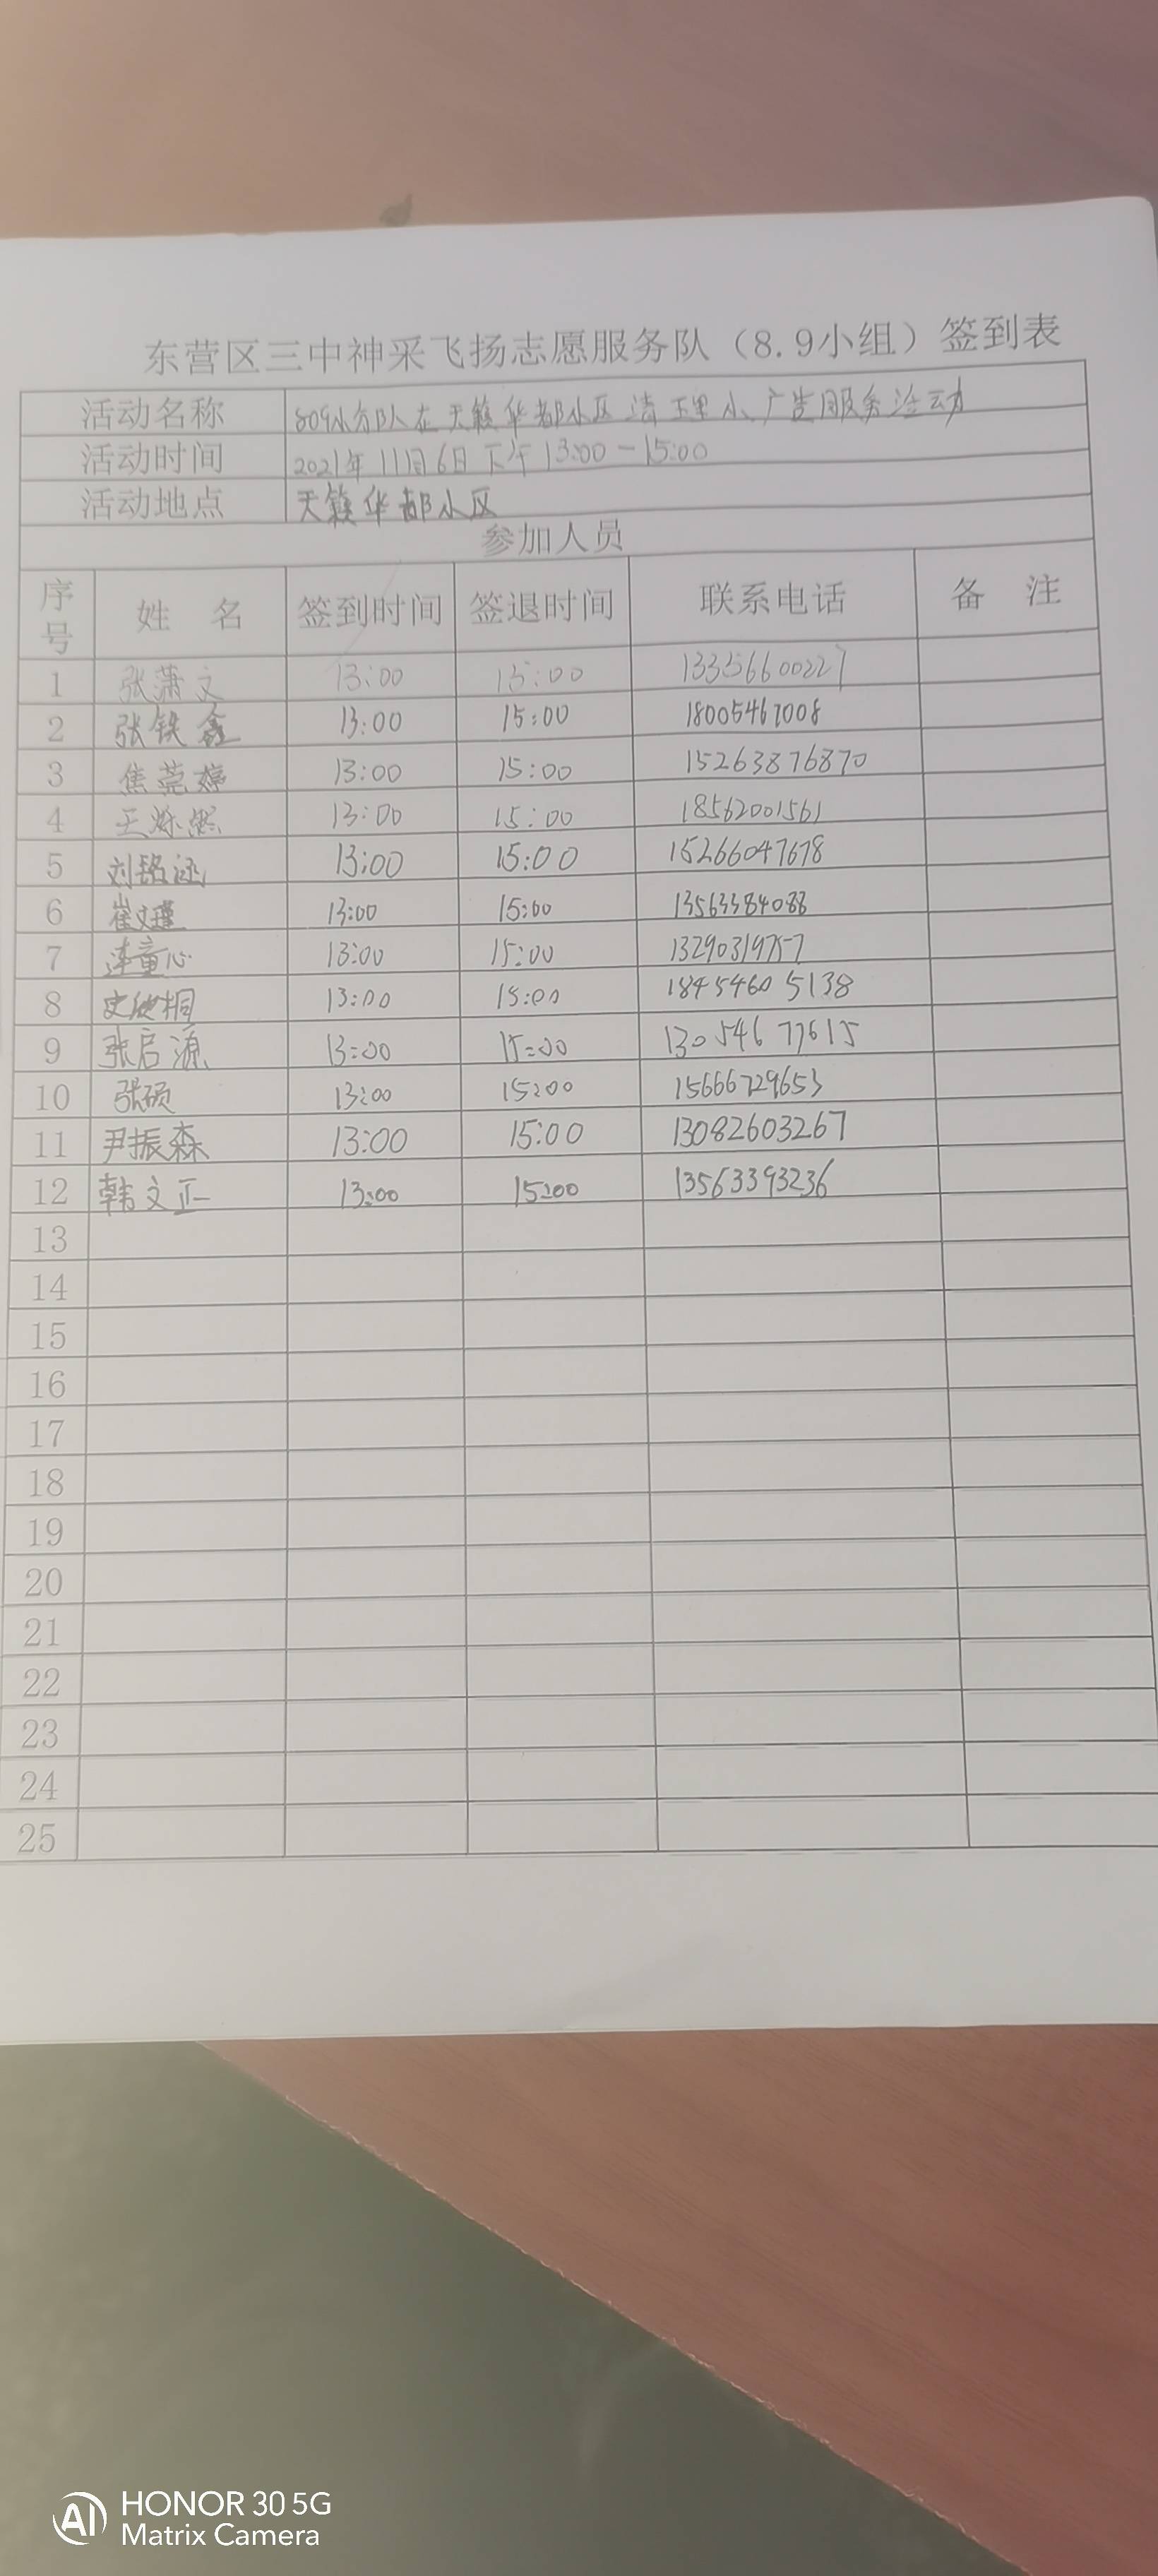 东营区三中神采飞扬志愿服务队（8.9小组）签到表
活动名称 809小分队在天籁华都小区清理小广告服务活动
活动时间 2021年11月6日下午13:00－15:00
活动地点 天籁华都小区
参加人员
序号 姓 名 签到时间 签退时间 联系电话 备 注
1 张潇文 13:00 15:00 13356600227
2 张铁鑫 13:00 15:00 18005467008
3 焦莞婷 13:00 15:00 15263876870
4 王烁然 13:00 15:00 18562001561
5 刘铭涵 13:00 15:00 15266047678
6 崔文瑾 13:00 15:00 13563384088
7 连童心 13:00 15:00 13290319757
8 史欣桐 13:00 15:00 18454605138
9 张启源 13:00 15:00 13054677615
10 张硕 13:00 15:00 15666729653
11 尹振森 13:00 15:00 13082603267
12 韩文正 13:00 15:00 13563393236
13
14
15
16
17
18
19
20
21
22
23
24
25
AI HONOR 30 5G
Matrix Camera